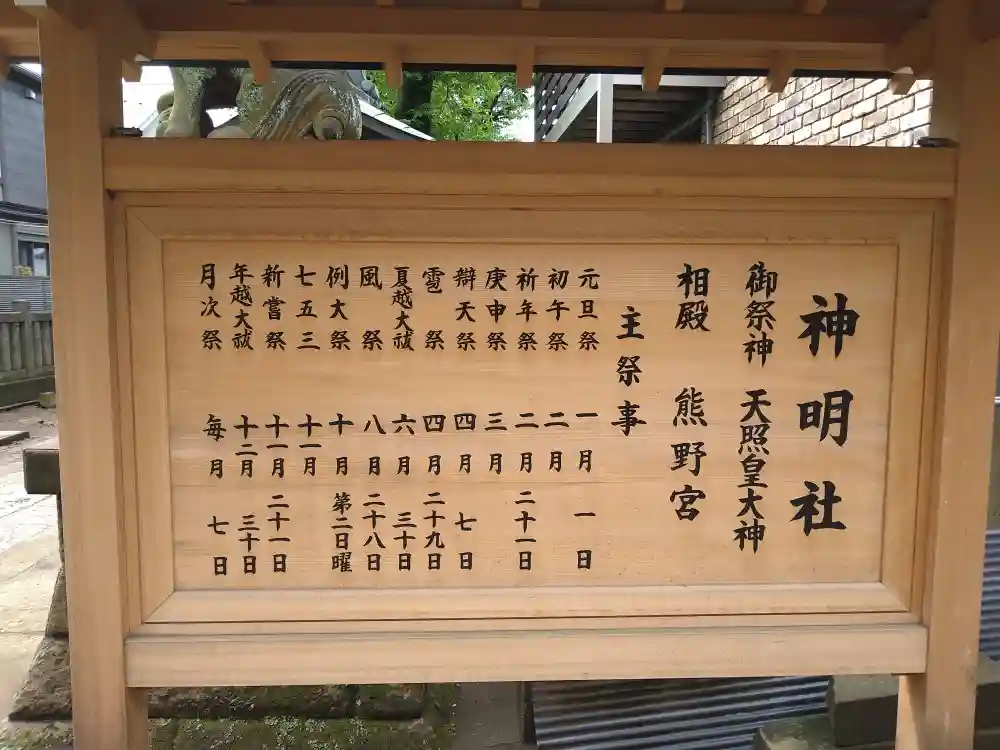 神明社
御祭神 天照皇大神
相殿 熊野宮
主祭事
元旦祭 一月 一日
初午祭 二月
祈年祭 二月 二十一日
庚申祭 三月
辯天祭 四月 七日
雹祭 四月 二十九日
夏越大祓 六月 三十日
風祭 八月 二十八日
例大祭 十月 第二日曜
七五三 十一月
新嘗祭 十一月 二十一日
年越大祓 十二月 三十日
月次祭 毎月 七日